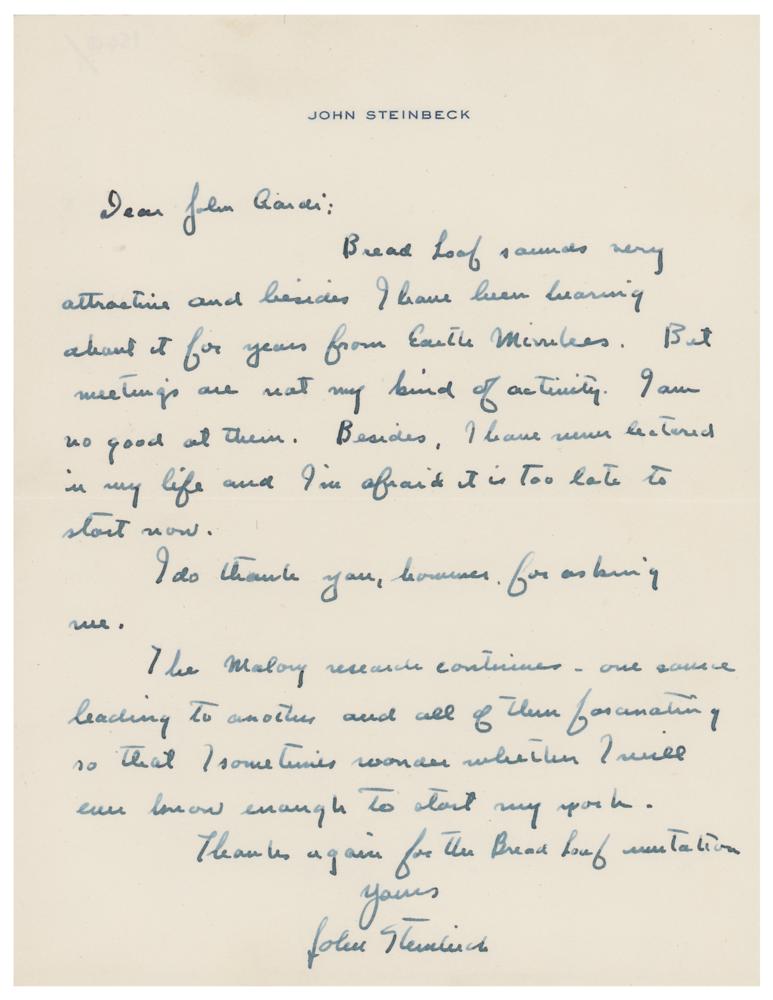 JOHN STEINBECK
Dear John Ciardi:
Bread Loaf sounds very
attractive and besides I have been hearing
about it for years from Edith Mirrielees. But
meetings are not my kind of activity. I am
no good at them. Besides, I have never lectured
in my life and I'm afraid it is too late to
start now.
I do thank you, however, for asking
me.
The Malory research continues - one source
leading to another and all of them fascinating
so that I sometimes wonder whether I will
ever know enough to start my work.
Thanks again for the Bread Loaf invitation
yours
John Steinbeck